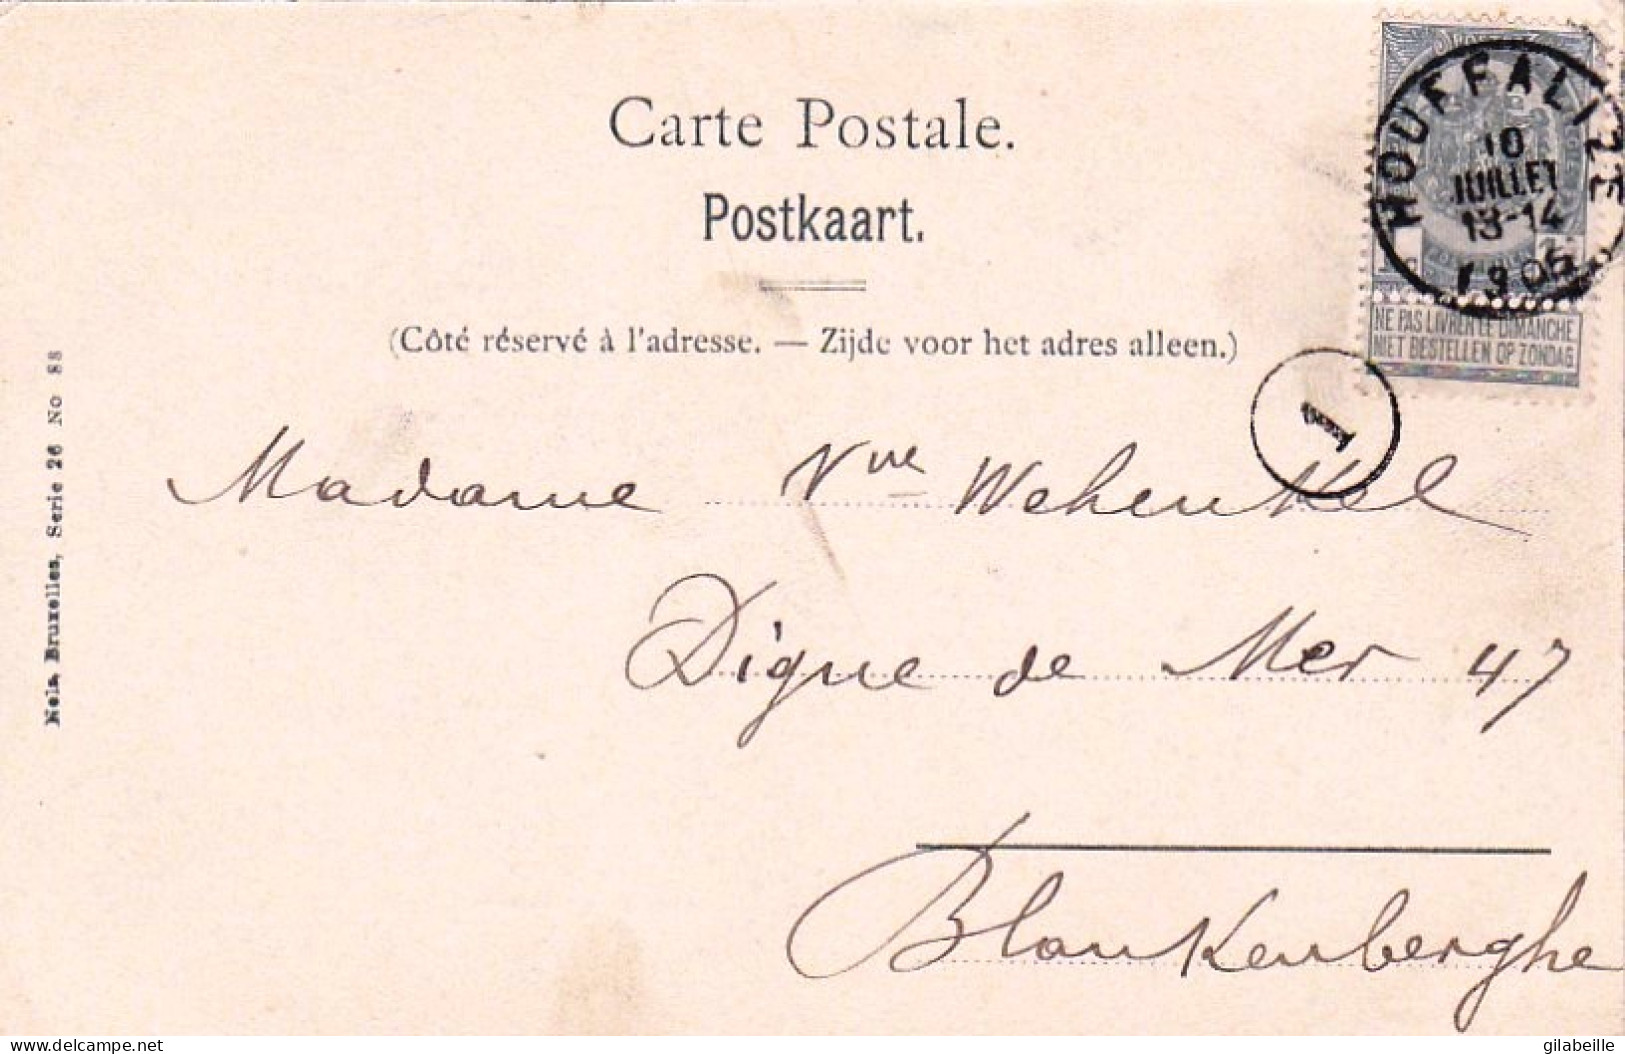 Carte Postale.
Postkaart.
(Côté réservé à l'adresse. — Zijde voor het adres alleen.)
HOUFFALIZE
10
JUILLET
13-14
1905
NE PAS LIVRER LE DIMANCHE
NIET BESTELLEN OP ZONDAG
1
Madame Vve Wehenkel
Digue de Mer 47
Blankenberghe
Nels, Bruxelles, Serie 26 No 88
delcampe.net
gilabeille